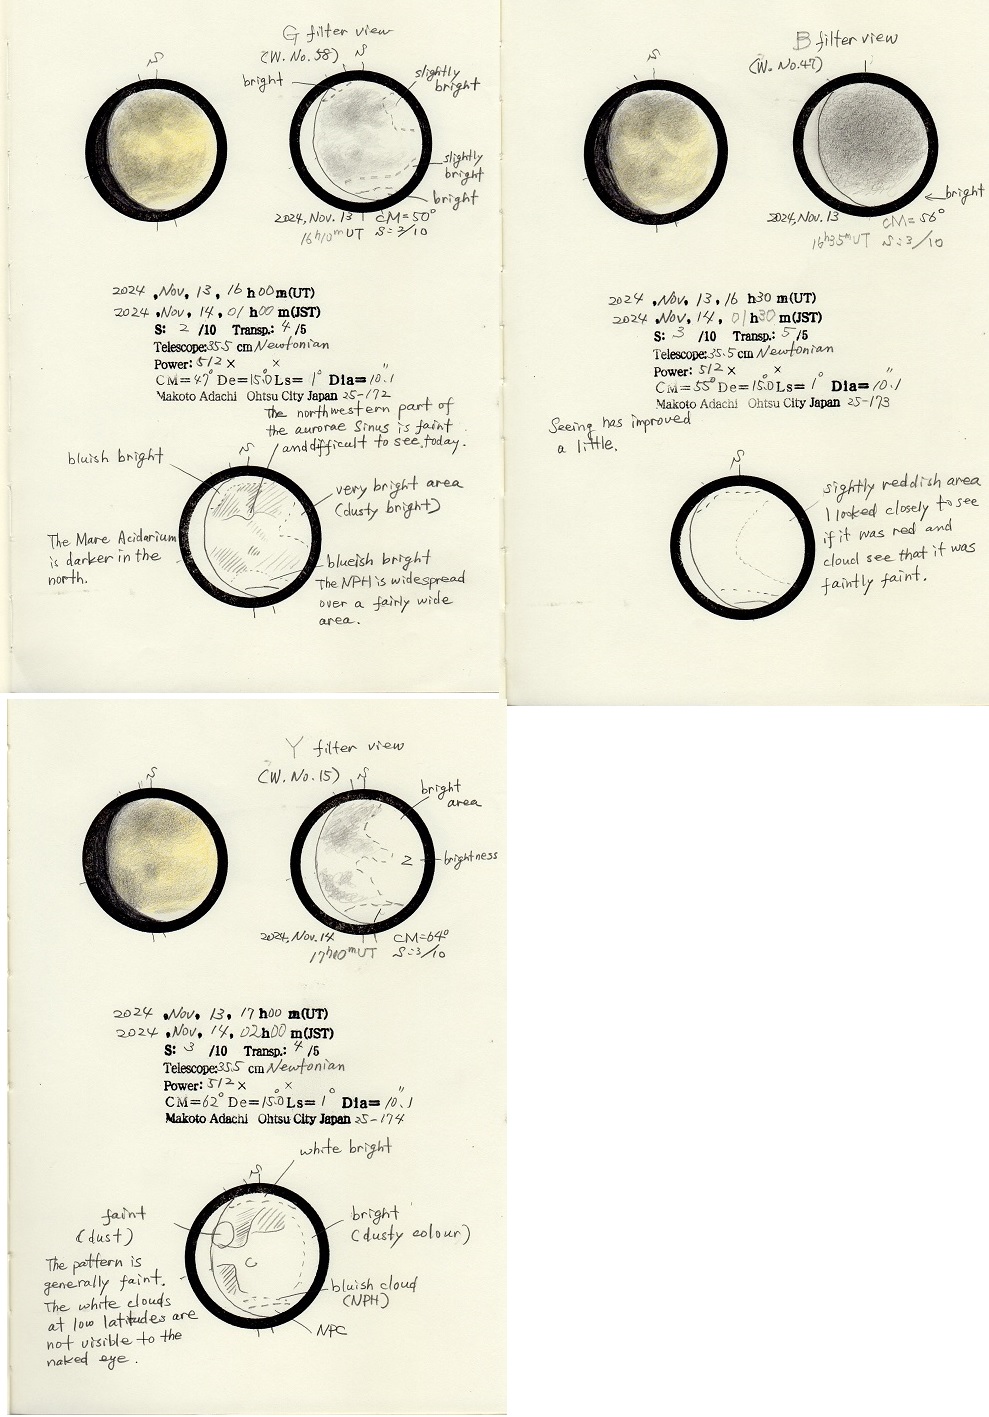 G filter view
(W. No. 58)
S
S
bright
slightly
bright
slightly
bright
bright
2024, Nov. 13 CM=50°
16h10mUT S=3/10
2024, Nov, 13, 16 h 00 m(UT)
2024, Nov, 14, 01 h 00 m(JST)
S: 2 /10 Transp.: 4 /5
Telescope: 35.5 cm Newtonian
Power: 512 × ×
CM=47° De=15.0° Ls= 1° Dia= 10.1"
Makoto Adachi Ohtsu City Japan 25-172
The northwestern part of
the aurorae Sinus is faint
and difficult to see today.
S
bluish bright
very bright area
(dusty bright)
The Mare Acidarium
is darker in the
north.
blueish bright
The NPH is widespread
over a fairly wide
area.
B filter view
(W. No. 47)
S
bright
2024, Nov. 13 CM= 56°
16h35mUT S=3/10
2024, Nov, 13, 16 h30 m(UT)
2024, Nov, 14, 01 h30 m(JST)
S: 3 /10 Transp.: 5 /5
Telescope: 35.5 cm Newtonian
Power: 512 × ×
CM=55° De=15.0° Ls= 1° Dia= 10.1"
Makoto Adachi Ohtsu City Japan 25-173
Seeing has improved
a little.
S
sightly reddish area
I looked closely to see
if it was red and
cloud see that it was
faintly faint.
Y filter view
(W. No. 15)
S
S
bright
area
2
brightness
2024, Nov. 14 CM=64°
17h10mUT S=3/10
2024, Nov, 13, 17 h00 m(UT)
2024, Nov, 14, 02 h00 m(JST)
S: 3 /10 Transp.: 4 /5
Telescope: 35.5 cm Newtonian
Power: 512 × ×
CM=62° De=15.0° Ls= 1° Dia= 10.1"
Makoto Adachi Ohtsu City Japan 25-174
white bright
S
faint
(dust)
bright
(dusty colour)
The pattern is
generally faint.
The white clouds
at low latitudes are
not visible to the
naked eye.
bluish cloud
(NPH)
NPC